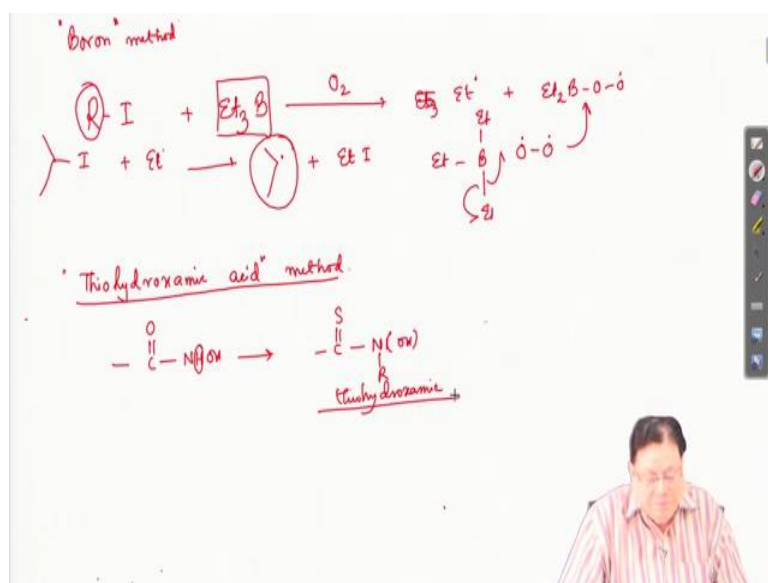 "Boron" method
R-I + Et3 B O2 Et• + Et2B-O-Ȯ
I + Et• + Et I
Et
Et - B Ȯ-Ȯ
Et
"Thiohydroxamic acid" method.
O S
- C - NHOH - C - N(OH)
R
thiohydroxamic